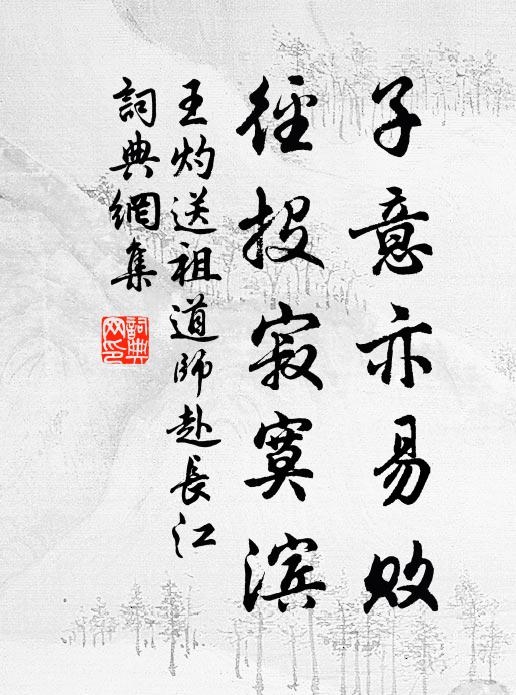 子意亦易败
径投寂寞滨
王灼送祖道師赴長江
詞典網集
詞典網印